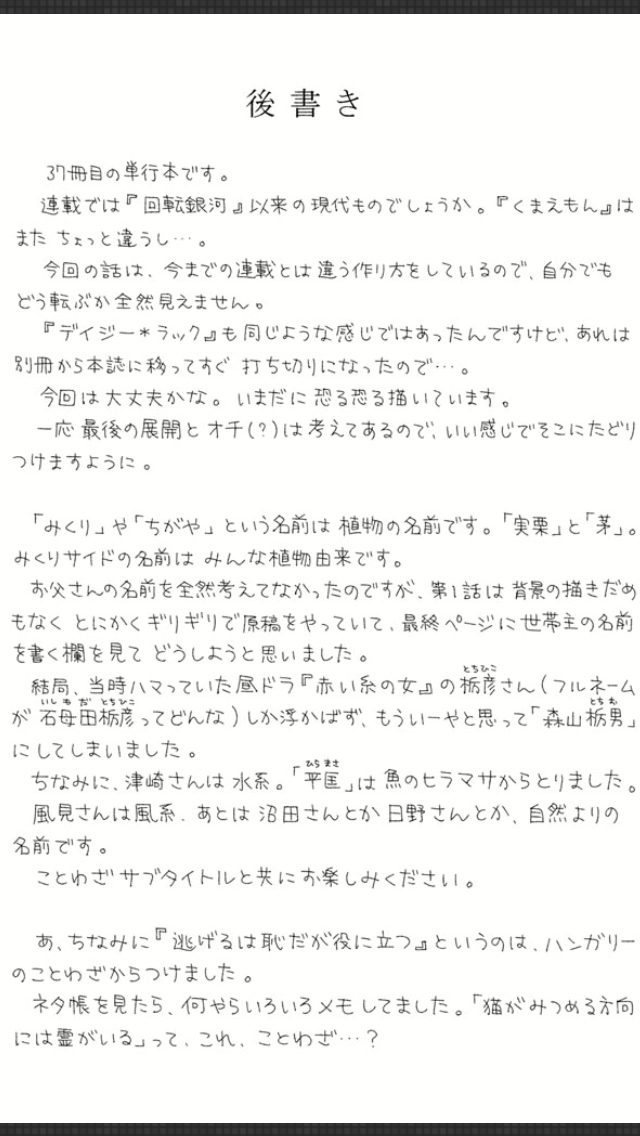 後書き
37冊目の単行本です。
連載では『回転銀河』以来の現代ものでしょうか。『くまえもん』は
また ちょっと違うし…。
今回の話は、今までの連載とは違う作り方をしているので、自分でも
どう転ぶか全然見えません。
『デイジー*ラック』も同じような感じではあったんですけど、あれは
別冊から本誌に移ってすぐ 打ち切りになったので…。
今回は大丈夫かな。いまだに恐る恐る描いています。
一応 最後の展開と オチ(?)は考えてあるので、いい感じでそこにたどり
つけますように。
「みくり」や「ちがや」という名前は 植物の名前です。「実栗」と「茅」。
みくりサイドの名前は みんな植物由来です。
お父さんの名前を全然考えてなかったのですが、第1話は背景の描きだめ
もなく とにかくギリギリで原稿をやっていて、最終ページに世帯主の名前
を書く欄を見て どうしようと思いました。
結局、当時ハマっていた昼ドラ『赤い糸の女』の栃彦さん(フルネーム
とちひこ
が 石母田栃彦ってどんな)しか浮かばず、もういーやと思って「森山栃男」
いしもだとちひこ
とちお
にしてしまいました。
ちなみに、津崎さんは 水系。「平匡」は 魚のヒラマサからとりました。
ひらまさ
風見さんは風系. あとは 沼田さんとか日野さんとか、自然よりの
名前です。
ことわざサブタイトルと共にお楽しみください。
あ、ちなみに『逃げるは恥だが役に立つ』というのは、ハンガリー
のことわざからつけました。
ネタ帳を見たら、何やらいろいろメモしてました。「猫がみつめる方向
には霊がいる」って、これ、ことわざ…?